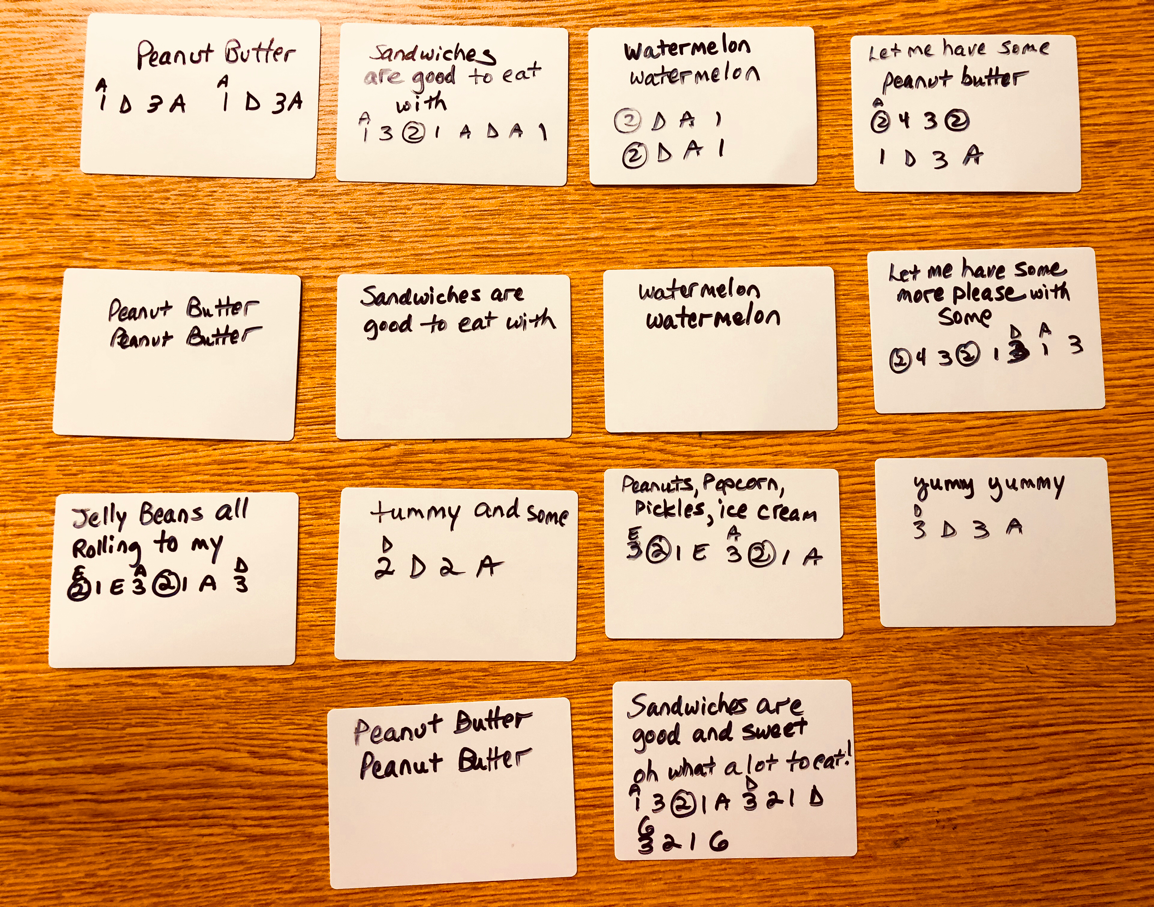 Peanut Butter
A A
1 D 3 A 1 D 3 A
Sandwiches
are good to eat
with
A
1 3 ② 1 A D A 1
Watermelon
watermelon
② D A 1
② D A 1
Let me have some
peanut butter
A
② 4 3 ②
1 D 3 A
Peanut Butter
Peanut Butter
Sandwiches are
good to eat with
watermelon
watermelon
Let me have some
more please with
some
D A
② 4 3 ② 1 3 1 3
Jelly Beans all
Rolling to my
E A D
② 1 E 3 ② 1 A 3
tummy and some
D
2 D 2 A
Peanuts, Popcorn,
Pickles, ice cream
E A
3 ② 1 E 3 ② 1 A
yummy yummy
D
3 D 3 A
Peanut Butter
Peanut Butter
Sandwiches are
good and sweet
oh what a lot to eat!
A D
1 3 ② 1 A 3 2 1 D
G
3 2 1 G